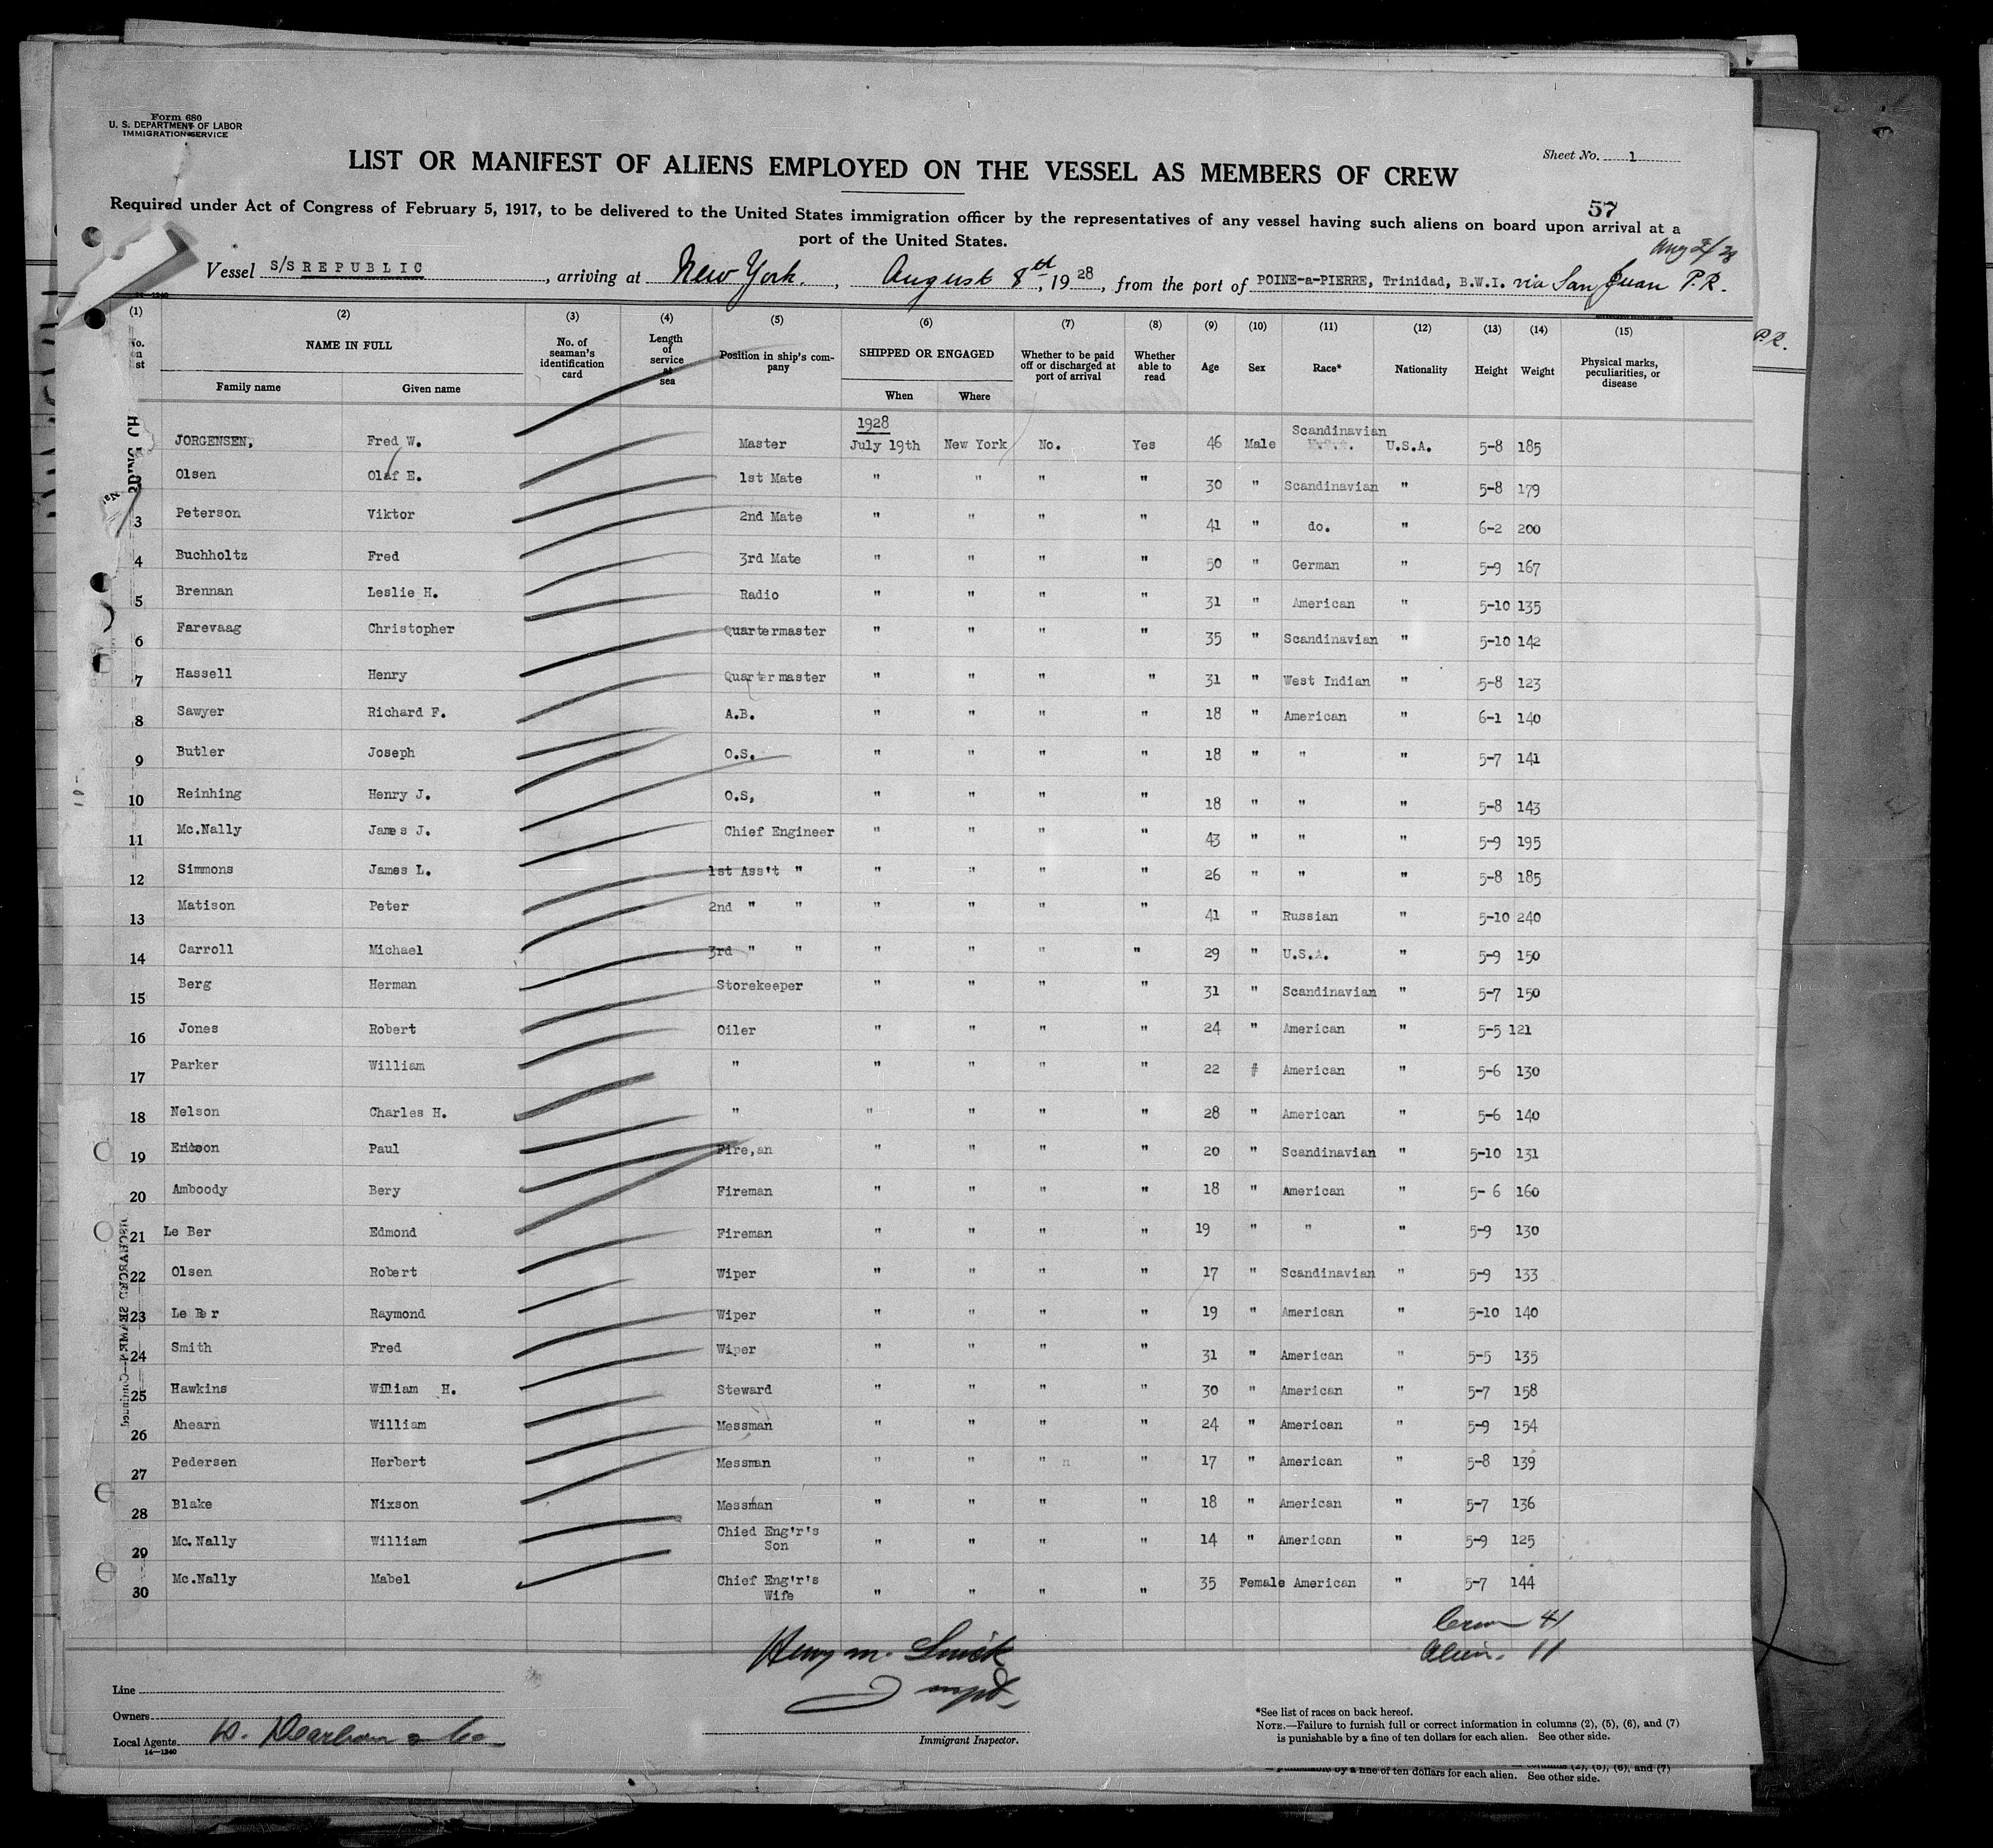 Form 680
U. S. DEPARTMENT OF LABOR
IMMIGRATION SERVICE
Sheet No. 1
LIST OR MANIFEST OF ALIENS EMPLOYED ON THE VESSEL AS MEMBERS OF CREW
57
Required under Act of Congress of February 5, 1917, to be delivered to the United States immigration officer by the representatives of any vessel having such aliens on board upon arrival at a
port of the United States.
Vessel S/S REPUBLIC, arriving at New York., August 8th, 1928, from the port of POINE-a-PIERRE, Trinidad, B.W.I. via San Juan P.R.
(1) (2) (3) (4) (5) (6) (7) (8) (9) (10) (11) (12) (13) (14) (15)
No. on list NAME IN FULL Family name Given name No. of seaman's identification card Length of service at sea Position in ship's company SHIPPED OR ENGAGED When Where Whether to be paid off or discharged at port of arrival Whether able to read Age Sex Race* Nationality Height Weight Physical marks, peculiarities, or disease
1928
JORGENSEN, Fred W. Master July 19th New York No. Yes 46 Male Scandinavian U.S.A. 5-8 185
Olsen Olaf E. 1st Mate " " " " 30 " Scandinavian " 5-8 179
3 Peterson Viktor 2nd Mate " " " " 41 " do. " 6-2 200
4 Buchholtz Fred 3rd Mate " " " " 50 " German " 5-9 167
5 Brennan Leslie H. Radio " " " " 31 " American " 5-10 135
6 Farevaag Christopher Quartermaster " " " " 35 " Scandinavian " 5-10 142
7 Hassell Henry Quartermaster " " " " 31 " West Indian " 5-8 123
8 Sawyer Richard F. A.B. " " " " 18 " American " 6-1 140
9 Butler Joseph O.S. " " " " 18 " " " 5-7 141
10 Reinhing Henry J. O.S, " " " " 18 " " " 5-8 143
11 Mc.Nally James J. Chief Engineer " " " " 43 " " " 5-9 195
12 Simmons James L. 1st Ass't " " " " " 26 " " " 5-8 185
13 Matison Peter 2nd " " " " " " 41 " Russian " 5-10 240
14 Carroll Michael 3rd " " " " " " 29 " U.S.A. " 5-9 150
15 Berg Herman Storekeeper " " " " 31 " Scandinavian " 5-7 150
16 Jones Robert Oiler " " " " 24 " American " 5-5 121
17 Parker William " " " " " 22 # American " 5-6 130
18 Nelson Charles H. " " " " " 28 " American " 5-6 140
19 Ericson Paul Fire,an " " " " 20 " Scandinavian " 5-10 131
20 Amboody Bery Fireman " " " " 18 " American " 5- 6 160
21 Le Ber Edmond Fireman " " " " 19 " " " 5-9 130
22 Olsen Robert Wiper " " " " 17 " Scandinavian " 5-9 133
23 Le Ber Raymond Wiper " " " " 19 " American " 5-10 140
24 Smith Fred Wiper " " " " 31 " American " 5-5 135
25 Hawkins William H. Steward " " " " 30 " American " 5-7 158
26 Ahearn William Messman " " " " 24 " American " 5-9 154
27 Pedersen Herbert Messman " " " n " 17 " American " 5-8 139
28 Blake Nixson Messman " " " " 18 " American " 5-7 136
29 Mc.Nally William Chied Eng'r's Son " " " " 14 " American " 5-9 125
30 Mc.Nally Mabel Chief Eng'r's Wife " " " " 35 Female American " 5-7 144
Crew 41
Alien. 11
Henry M.
Line
Owners
Local Agents W. Dearborn & Co
14—1240
Immigrant Inspector.
*See list of races on back hereof.
NOTE.—Failure to furnish full or correct information in columns (2), (5), (6), and (7)
is punishable by a fine of ten dollars for each alien. See other side.
is punishable by a fine of ten dollars for each alien. See other side.
P.R.